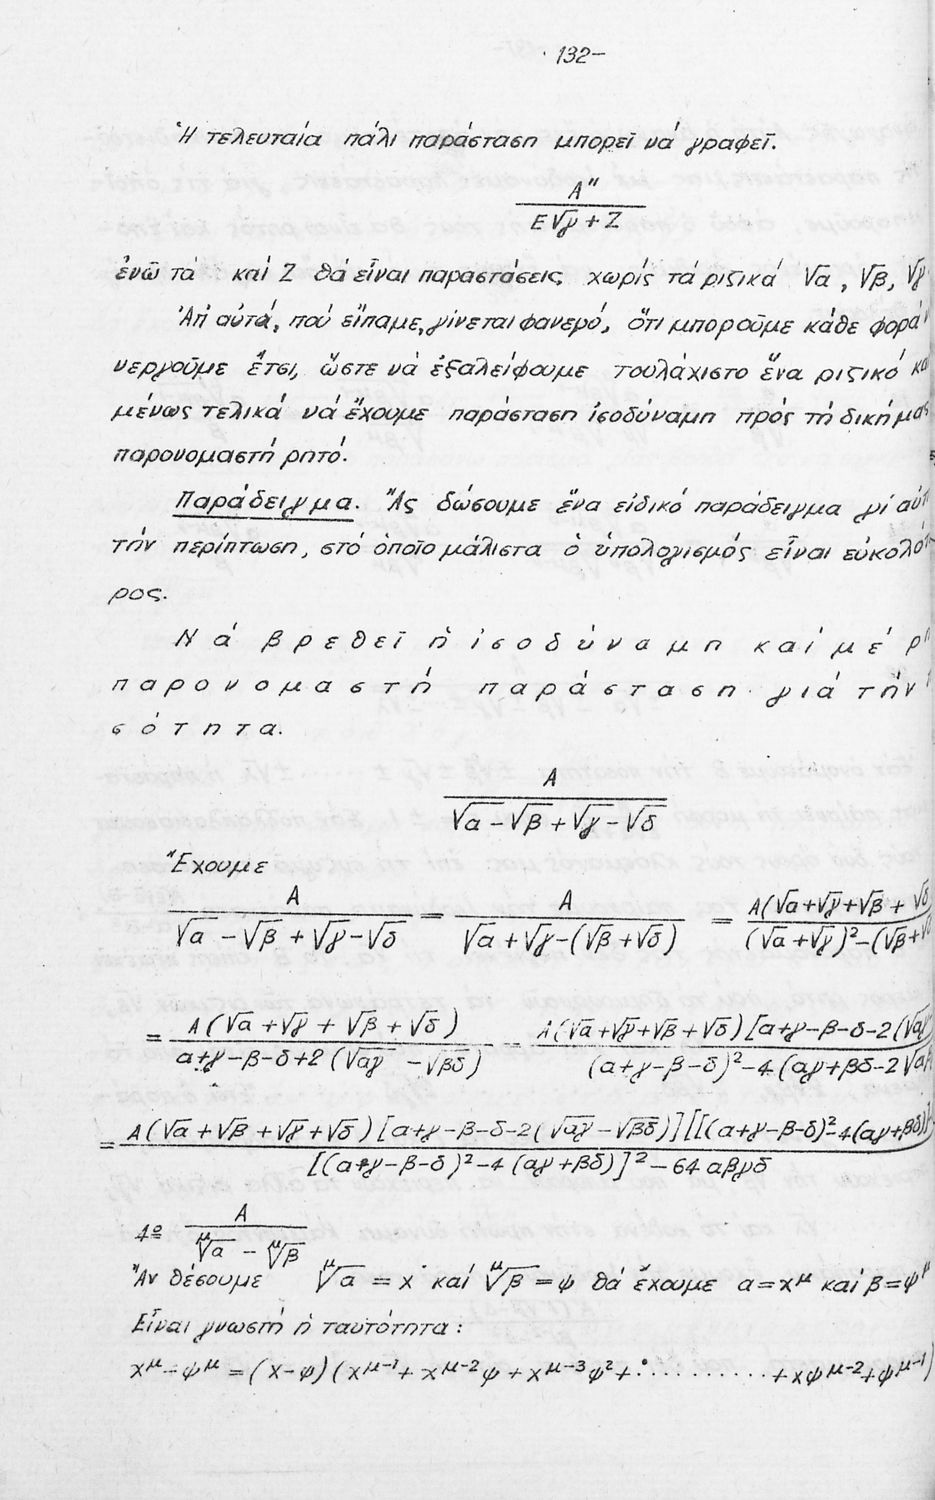 - 132 -
Ἡ τελευταία πάλι παράσταση μπορεῖ νά γραφεῖ.
Α''
Ε√γ + Ζ
ἐνῶ τα καί Ζ θά εἶναι παραστάσεις χωρίς τά ριζικά √α, √β, √γ
Ἀπ αὐτά, πού εἴπαμε, γίνεται φανερό, ὅτι μποροῦμε κάθε φορά
νεργοῦμε ἔτσι, ὥστε νά ἐξαλείφουμε τουλάχιστο ἕνα ριζικό κα
μένως τελικά νά ἔχουμε παράσταση ἰσοδύναμη πρός τή δική μας
παρονομαστή ρητό.
Παράδειγμα. Ἄς δώσουμε ἕνα εἰδικό παράδειγμα γι αὐτ
τήν περίπτωση, στό ὁποῖο μάλιστα ὁ ὑπολογισμός εἶναι εὐκολό
ρος.
Νά βρεθεῖ ἡ ἰσοδύναμη καί μέ ρη
παρονομαστή παράσταση γιά τήν
σότητα.
Α
√α - √β + √γ - √δ
Ἔχουμε
Α / (√α - √β + √γ - √δ) = Α / (√α + √γ - (√β + √δ)) = Α(√α + √γ + √β + √δ / (√α + √γ)² - (√β + √δ
= Α(√α + √γ + √β + √δ) / (α+γ-β-δ+2(√αγ - √βδ)) = Α(√α+√γ+√β+√δ)[α+γ-β-δ-2(√αγ / (α+γ-β-δ)²-4(αγ+βδ-2√αβ
= Α(√α+√β+√γ+√δ)[α+γ-β-δ-2(√αγ-√βδ)][[(α+γ-β-δ)²-4(αγ+βδ)] / [(α+γ-β-δ)²-4(αγ+βδ)]²-64αβγδ
4º Α / (μ√α - μ√β)
Ἄν θέσουμε μ√α = χ καί μ√β = ψ θά ἔχουμε α=χ^μ καί β=ψ^μ
Εἶναι γνωστή ἡ ταυτότητα:
χ^μ - ψ^μ = (χ-ψ)(χ^μ-1 + χ^μ-2 ψ + χ^μ-3 ψ² + .......... + χψ^μ-2 + ψ^μ-1)